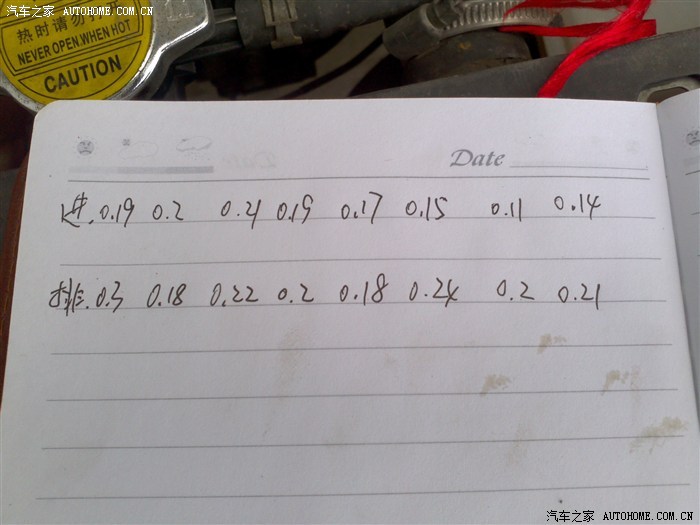 汽车之家 AUTOHOME.COM.CN
热时请勿打开
NEVER OPEN WHEN HOT
CAUTION
Date
进.0.19 0.2 0.21 0.19 0.17 0.15 0.11 0.14
排.0.3 0.18 0.22 0.2 0.18 0.24 0.2 0.21
汽车之家 AUTOHOME.COM.CN